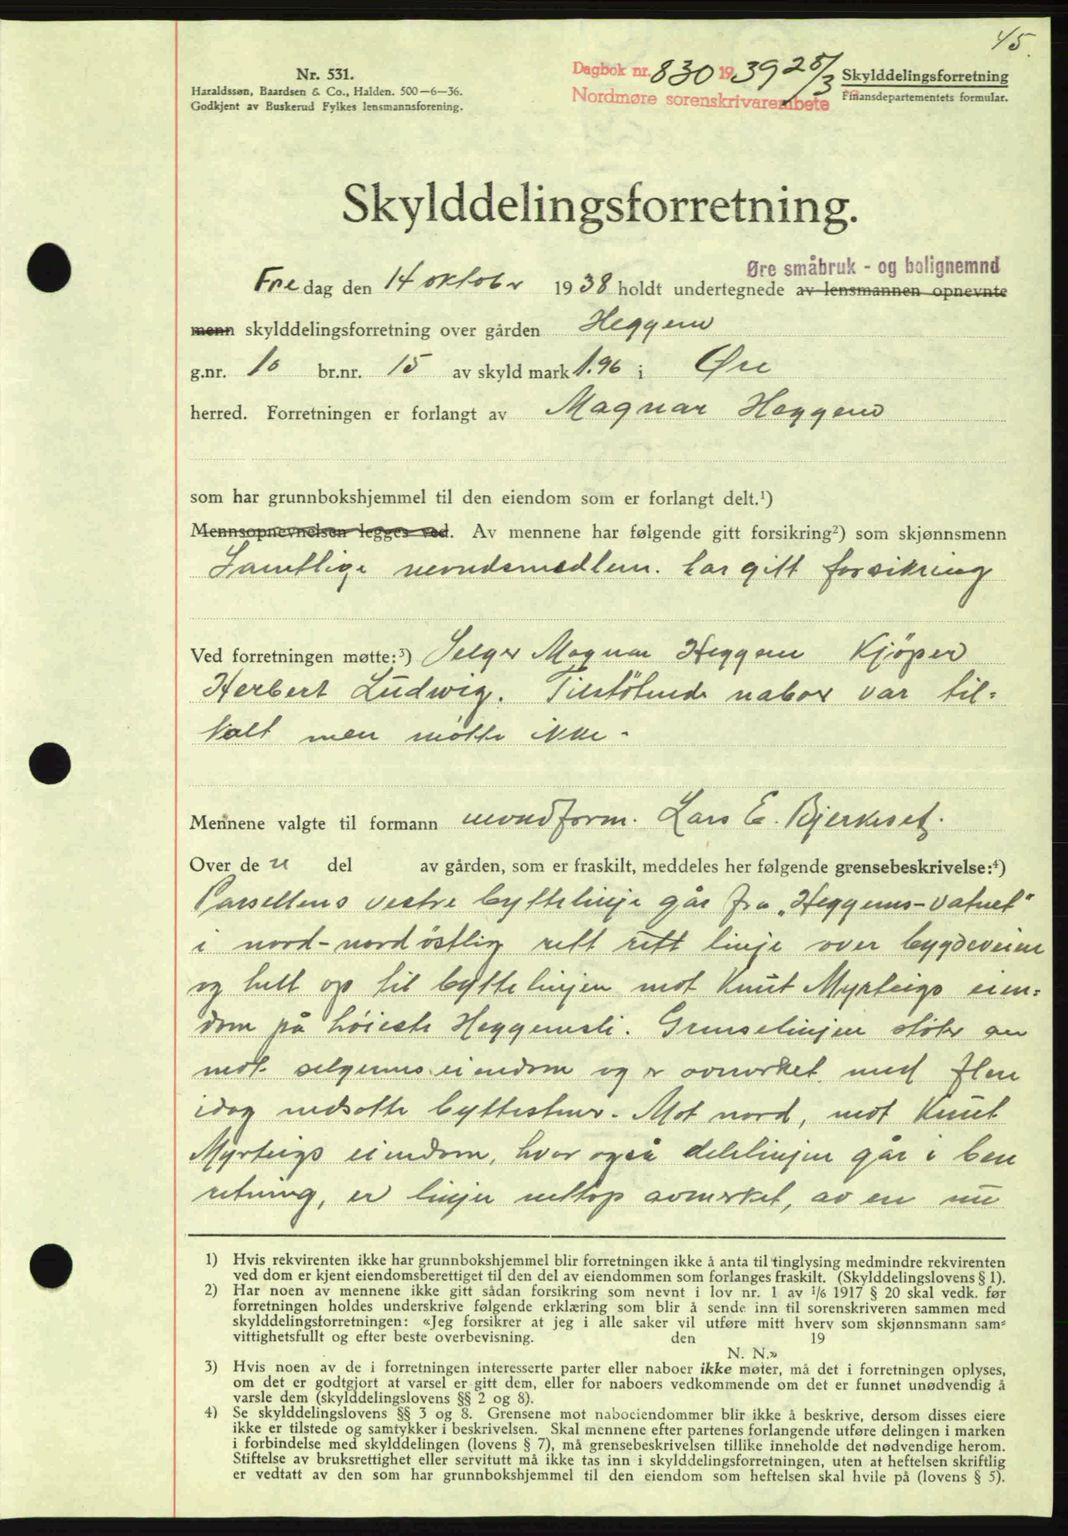 45.
Nr. 531.
Haraldssøn, Baardsen & Co., Halden. 500—6—36.
Godkjent av Buskerud Fylkes lensmannsforening.
Dagbok nr. 830 1939 25/3
Nordmøre sorenskrivarembete
Skylddelingsforretning
Finansdepartementets formular.
Skylddelingsforretning.
Øre småbruk - og bolignemnd
Fredag den 14 oktober 1938 holdt undertegnede av lensmannen opnevnte
menn skylddelingsforretning over gården Heggem
g.nr. 10 br.nr. 15 av skyld mark 1.96 i Øre
herred. Forretningen er forlangt av Magnar Heggem
som har grunnbokshjemmel til den eiendom som er forlangt delt.¹)
Mennsopnevnelsen legges ved. Av mennene har følgende gitt forsikring²) som skjønnsmenn
Samtlige nevndsmedlem. har gitt forsikring
Ved forretningen møtte:³) Selger Magnar Heggem Kjöper
Herbert Ludwig. Tilstötende naboer var til=
kalt men møtte ikke.
Mennene valgte til formann nevndform. Lars E. Bjerkeset.
Over de n del av gården, som er fraskilt, meddeles her følgende grensebeskrivelse:⁴)
Parsellens vestre byttelinje går fra „Heggems-vatnet"
i nord-nordöstlig rett rett linje over bygdeveien
og helt op til byttelinjen mot Knut Myrteigs eien=
dom på höieste Heggemsli. Grenselinjen støter an
mot selgerens eiendom og er avmerket med flere
idag nedsatte byttestener. Mot nord, mot Knut
Myrteigs eiendom, hvor også delelinjen går i ben
retning, er linjen nettop avmerket, av en nu
1) Hvis rekvirenten ikke har grunnbokshjemmel blir forretningen ikke å anta til tinglysing medmindre rekvirenten
ved dom er kjent eiendomsberettiget til den del av eiendommen som forlanges fraskilt. (Skylddelingslovens § 1).
2) Har noen av mennene ikke gitt sådan forsikring som nevnt i lov nr. 1 av 1/6 1917 § 20 skal vedk. før
forretningen holdes underskrive følgende erklæring som blir å sende inn til sorenskriveren sammen med
skylddelingsforretningen: «Jeg forsikrer at jeg i alle saker vil utføre mitt hverv som skjønnsmann sam=
vittighetsfullt og efter beste overbevisning. den 19
N. N.»
3) Hvis noen av de i forretningen interesserte parter eller naboer ikke møter, må det i forretningen oplyses,
om det er godtgjort at varsel er gitt dem, eller for naboers vedkommende om det er funnet unødvendig å
varsle dem (skylddelingslovens §§ 2 og 8).
4) Se skylddelingslovens §§ 3 og 8. Grensene mot naboeiendommer blir ikke å beskrive, dersom disses eiere
ikke er tilstede og samtykker i beskrivelsen. Skal mennene efter partenes forlangende utføre delingen i marken
i forbindelse med skylddelingen (lovens § 7), må grensebeskrivelsen tillike inneholde det nødvendige herom.
Stiftelse av bruksrettighet eller servitutt må ikke tas inn i skylddelingsforretningen, uten at heftelsen skriftlig
er vedtatt av den som har grunnbokshjemmel til den eiendom som heftelsen skal hvile på (lovens § 5).